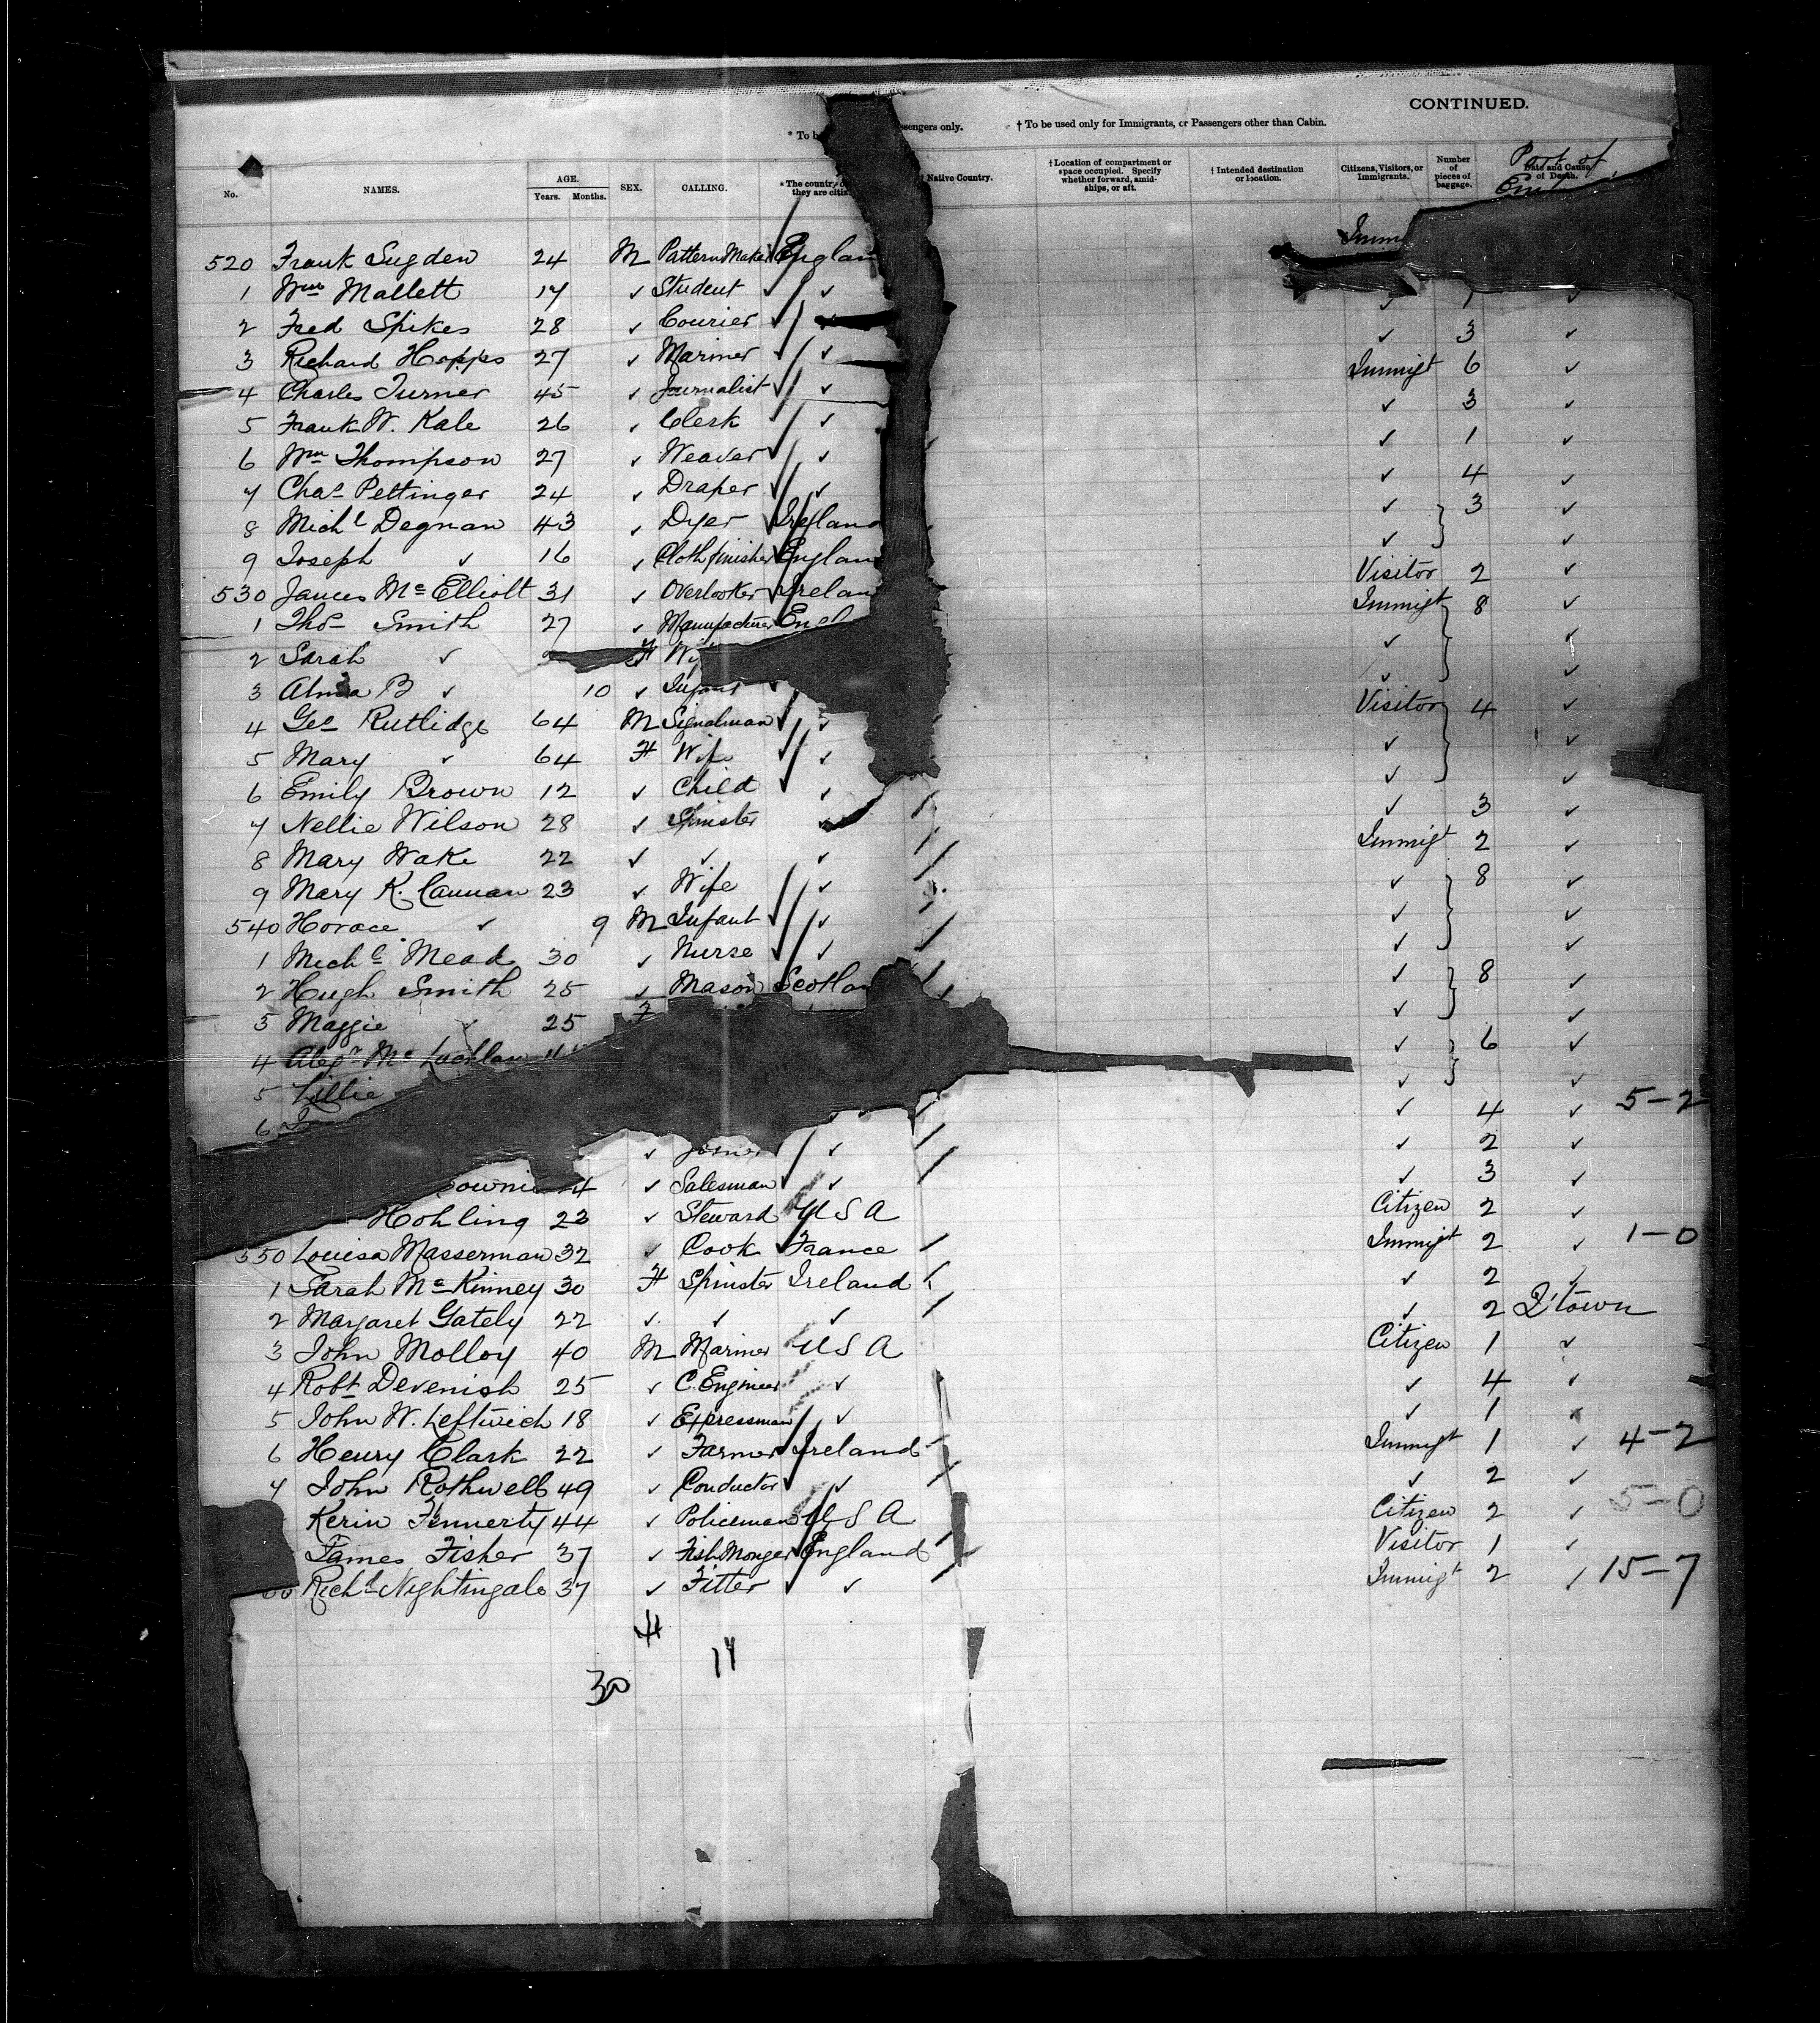 CONTINUED.
* To b ssengers only. † To be used only for Immigrants, or Passengers other than Cabin.
No. NAMES. AGE. Years. Months. SEX. CALLING. * The country they are citiz Native Country. † Location of compartment or space occupied. Specify whether forward, amidships, or aft. † Intended destination or location. Citizens, Visitors, or Immigrants. Number of pieces of baggage. Date and Cause of Death. Port of
520 Frank Sugden 24 M Pattern Maker Englan Imm
1 Wm Mallett 17 ✓ Student ✓ ✓ 1 ✓
2 Fred Spikes 28 ✓ Courier ✓ 3 ✓
3 Richard Hopps 27 ✓ Mariner ✓ Immigt 6 ✓
4 Charles Turner 45 ✓ Journalist ✓ ✓ 3 ✓
5 Frank W. Kale 26 ✓ Clerk ✓ ✓ 1 ✓
6 Wm Thompson 27 ✓ Weaver ✓ ✓ 4 ✓
7 Chas Pettinger 24 ✓ Draper ✓ ✓ 3 ✓
8 Michl Degnan 43 ✓ Dyer Ireland ✓ ✓
9 Joseph ✓ 16 ✓ Cloth finisher Englan Visitor 2 ✓
530 James McElliott 31 ✓ Overlooker Irelan Immigt 8 ✓
1 Thos Smith 27 ✓ Manufacturer Engl ✓ ✓
2 Sarah ✓ F Wi ✓ ✓
3 Alma B ✓ 10 ✓ Infant Visitor 4 ✓
4 Geo Rutlidge 64 M Signalman ✓ ✓ ✓
5 Mary ✓ 64 F Wife ✓ ✓ ✓
6 Emily Brown 12 ✓ Child ✓ ✓ 3 ✓
7 Nellie Wilson 28 ✓ Spinster ✓ Immigt 2 ✓
8 Mary Wake 22 ✓ ✓ ✓ ✓ 8 ✓
9 Mary K. Cannan 23 ✓ Wife ✓ ✓ ✓
540 Horace ✓ 9 M Infant ✓ ✓ ✓
1 Michl Mead 30 ✓ Nurse ✓ ✓ 8 ✓
2 Hugh Smith 25 ✓ Mason Scotlan ✓ ✓
3 Maggie ✓ 25 F ✓ 6 ✓
4 Alexr McLachlan ✓ ✓
5 Lillie ✓ 4 ✓ 5-2
6 ✓ 2 ✓
✓ Joiner ✓ ✓ 3 ✓
ownie 4 ✓ Salesman ✓ Citizen 2 ✓
Hohling 23 ✓ Steward U S A Immigt 2 ✓ 1-0
550 Louisa Masserman 32 ✓ Cook France ✓ 2 ✓
1 Sarah McKinney 30 F Spinster Ireland ✓ 2 Q'town
2 Margaret Gately 22 ✓ ✓ ✓ Citizen 1 ✓
3 John Molloy 40 M Mariner U S A ✓ 4 ✓
4 Robt Devenish 25 ✓ C. Engineer ✓ ✓ 1 ✓
5 John W. Leftwich 18 ✓ Expressman ✓ Immigt 1 ✓ 4-2
6 Henry Clark 22 ✓ Farmer Ireland ✓ 2 ✓
7 John Rothwell 49 ✓ Conductor ✓ Citizen 2 ✓ 5-0
Kerin Fennerty 44 ✓ Policeman U S A Visitor 1 ✓
James Fisher 37 ✓ Fish Monger England Immigt 2 ✓ 15-7
60 Richd Nightingale 37 ✓ Fitter ✓
H
30 17